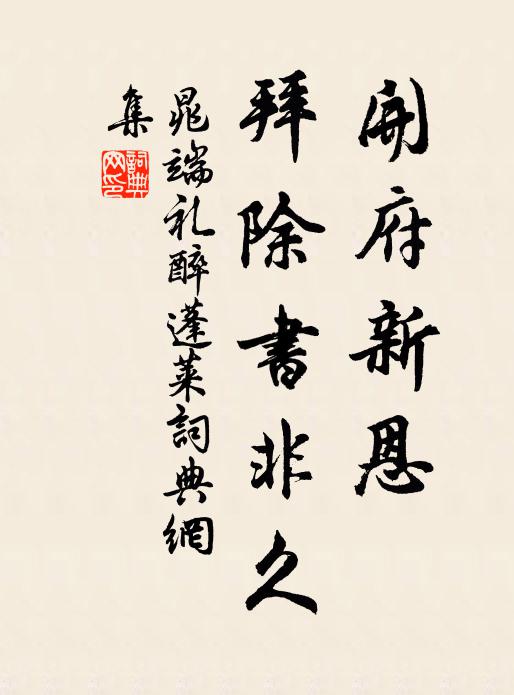 開府新恩
拜除書非久
晁端礼醉蓬萊詞典網
集
詞典
网印